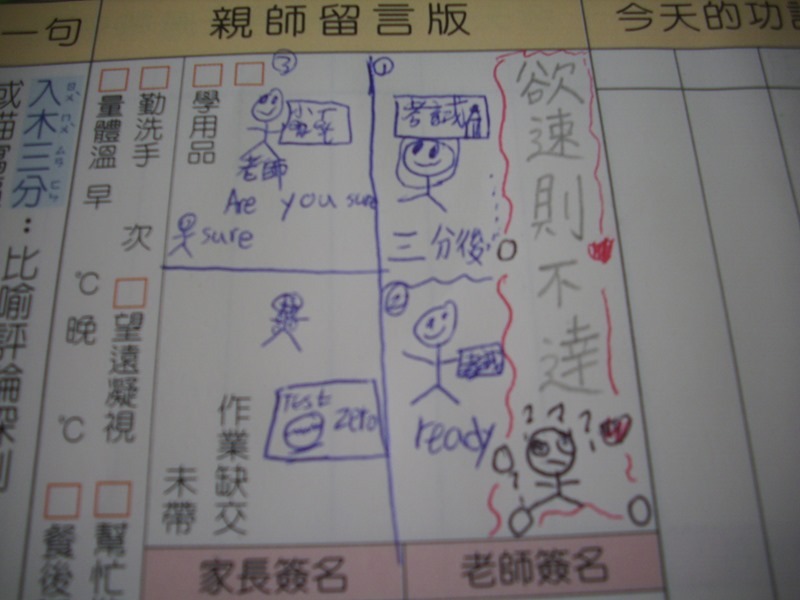 一句
親師留言版
今天的功
欲速則不達
①
考試
三分後
②
ready
③
老師
Are you sure
sure
Test
zero
學用品
作業缺交
未帶
勤洗手
量體溫 早
次
℃
晚
℃
望遠凝視
幫忙
餐後
入木三分：比喻評論深刻
ㄖㄨˋ ㄇㄨˋ ㄙㄢ ㄈㄣ
家長簽名
老師簽名